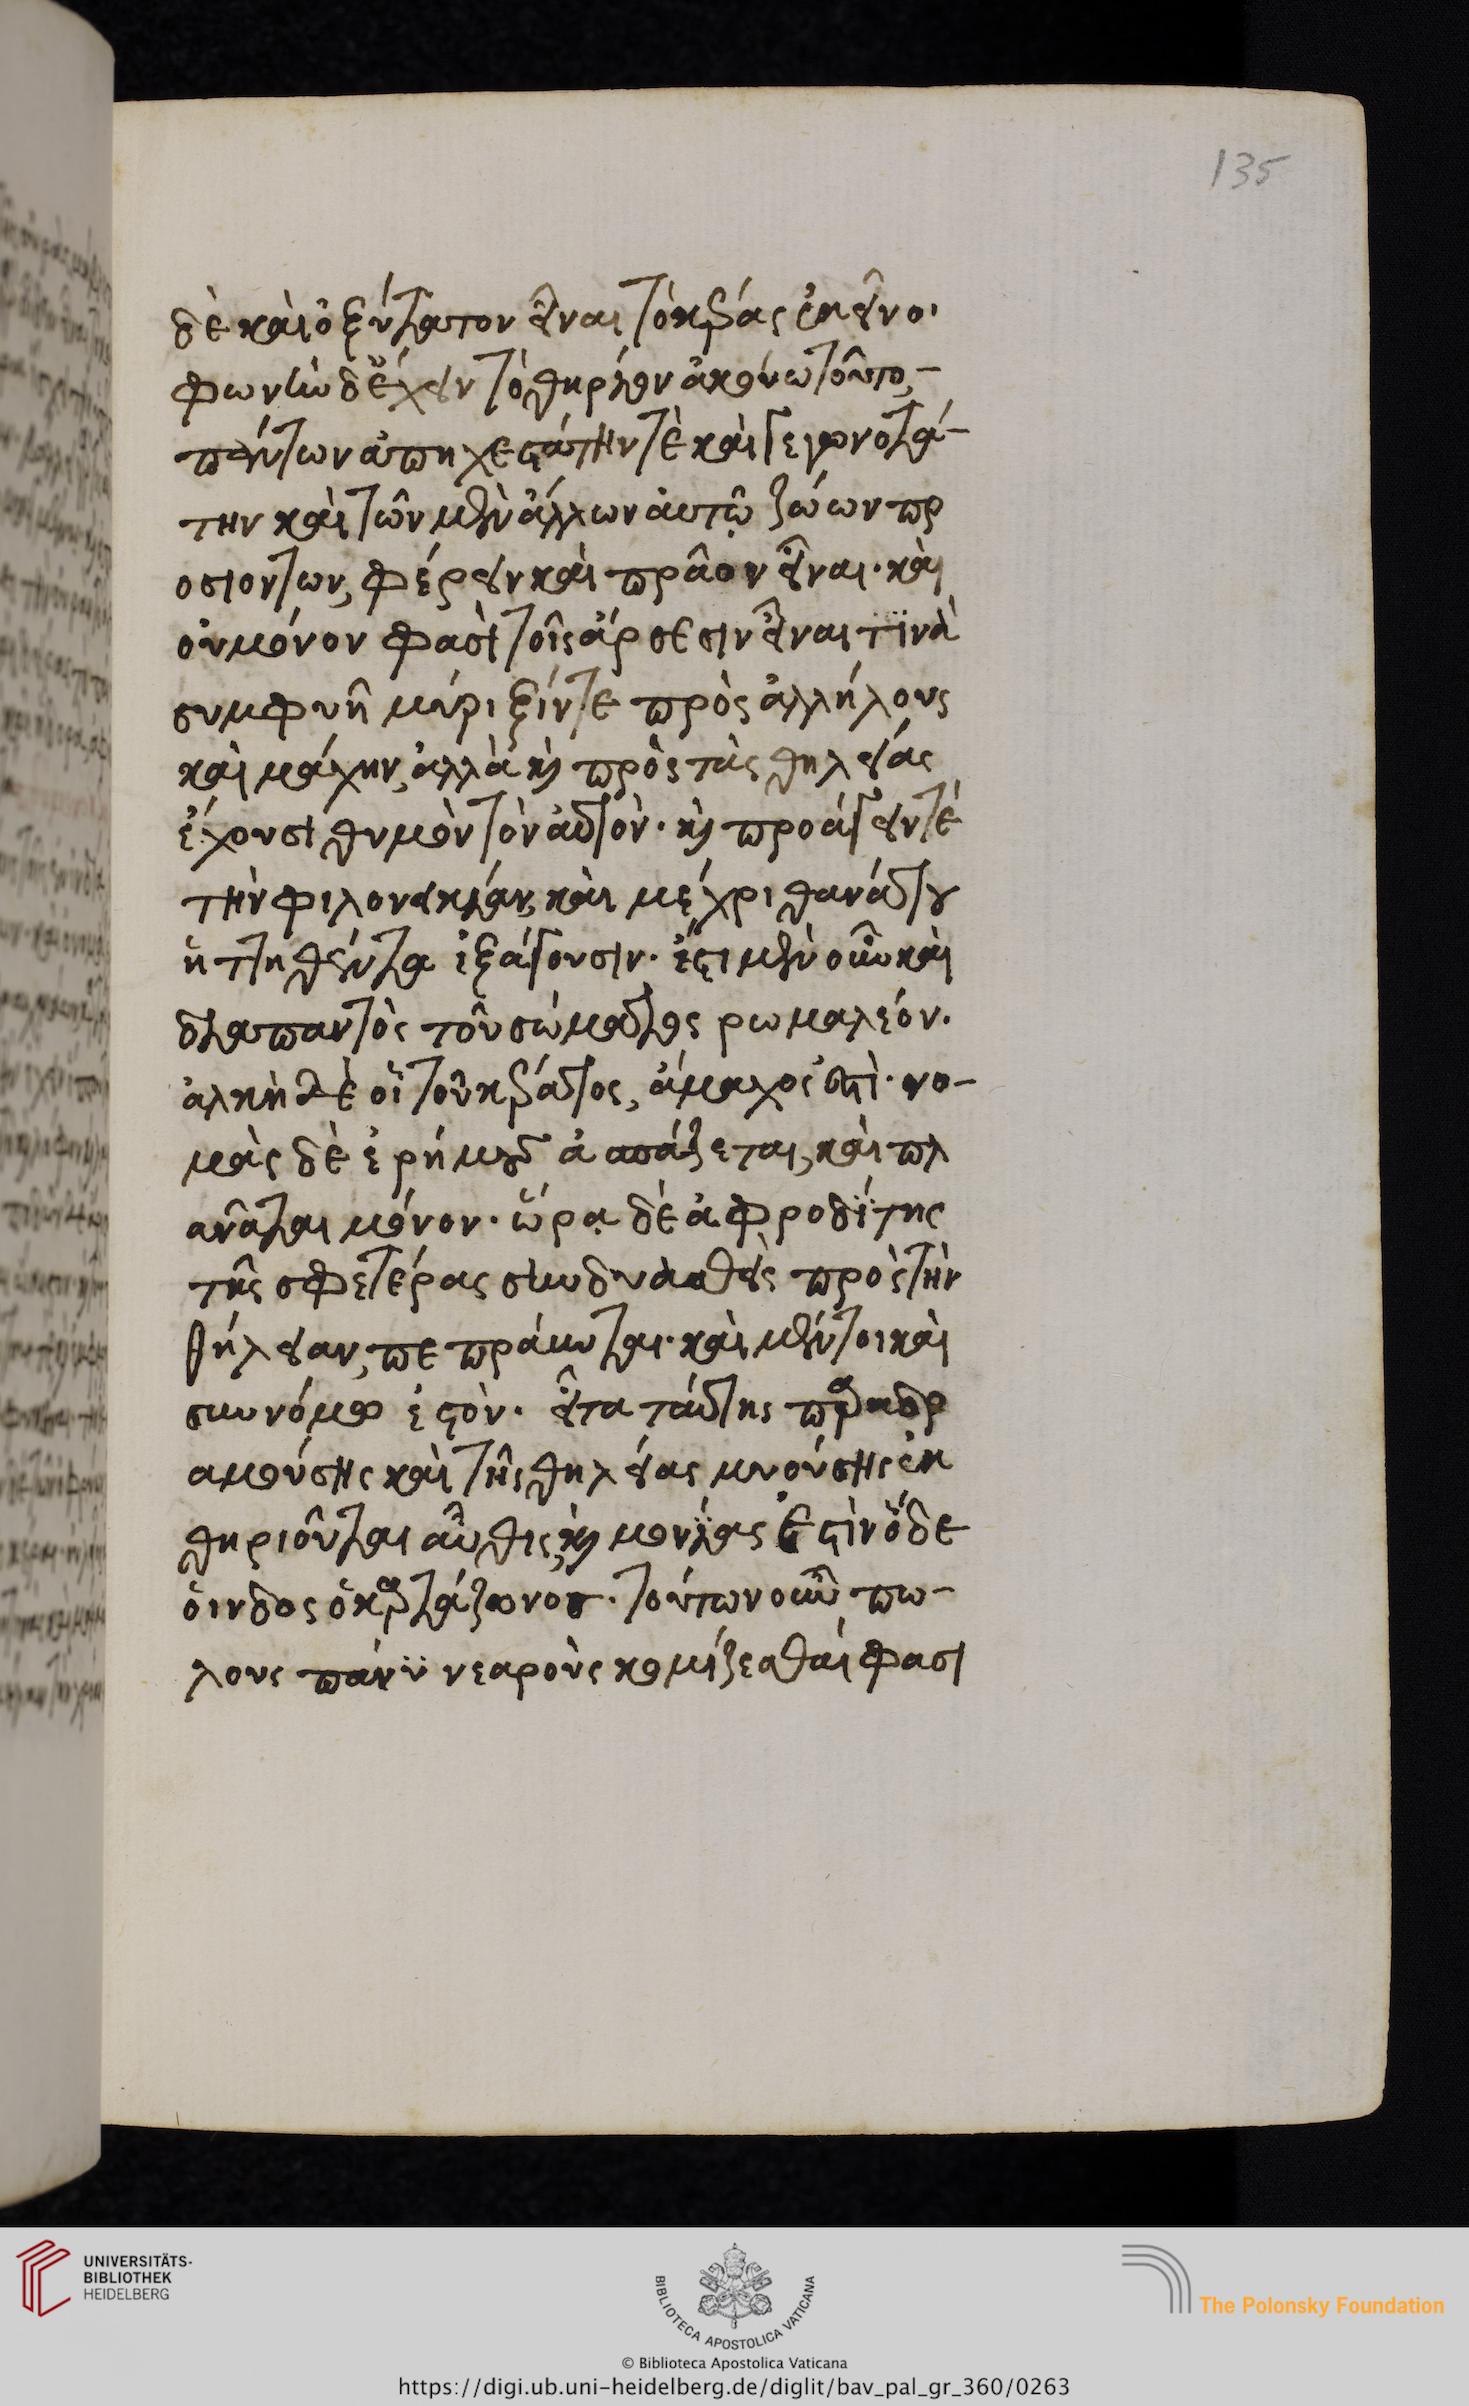 135
δὲ καὶ ὀξύτατον εἶναι τὸ κέρας ἐκεῖνο·
φωνὴν δὲ ἔχειν τὸ θηρίον ἀκούω τοῦτο,
πάντων ἀπηχεστάτην τὲ καὶ γεγωνοτά-
την καὶ τῶν μὲν ἄλλων αὐτῷ ζώων πρ
οσιόντων, φέρειν καὶ πρᾶον εἶναι· καὶ
οὐ μόνον φασὶ τοῖς ἄρσεσιν εἶναι τινὰ
συμφυῆ κυρίξίν τε πρὸς ἀλλήλους
καὶ μάχην, ἀλλὰ καὶ πρὸς τὰς θηλείας
ἔχουσι θυμὸν τὸν αὐτὸν· καὶ προάγειν τὲ
τὴν φιλονεικίαν, καὶ μέχρι θανάτου
ἡττηθέντα ἐξάγουσιν· ἔστι μὲν οὖν καὶ
διαπαντὸς τοῦ σώματος ρωμαλέον·
ἀλκὴ δὲ οἱ τοῦ κέρατος, ἄμαχος ἐστὶ· νο-
μὰς δὲ ἐρήμους ἀσπάζεται, καὶ πλ
ανᾶται μόνον· ὥρᾳ δὲ ἀφροδίτης
τῆς σφετέρας συνδυασθεὶς πρὸς τὴν
θήλειαν, πεπράυνται· καὶ μέντοι καὶ
συννόμω ἐστὸν· εἶτα ταύτης παραδρ
αμούσης καὶ τῆς θηλείας κυούσης ἐκ
θηριοῦται αὖθις, καὶ μονίας ἐστὶν ὅδε
ὁ ινδὸς ὁ καρτάζωνος· τούτων οὖν πώ-
λους πάνϋ νεαροὺς κομίζεσθαί φασι
UNIVERSITÄTS-
BIBLIOTHEK
HEIDELBERG
BIBLIOTECA APOSTOLICA VATICANA
The Polonsky Foundation
© Biblioteca Apostolica Vaticana
https://digi.ub.uni-heidelberg.de/diglit/bav_pal_gr_360/0263